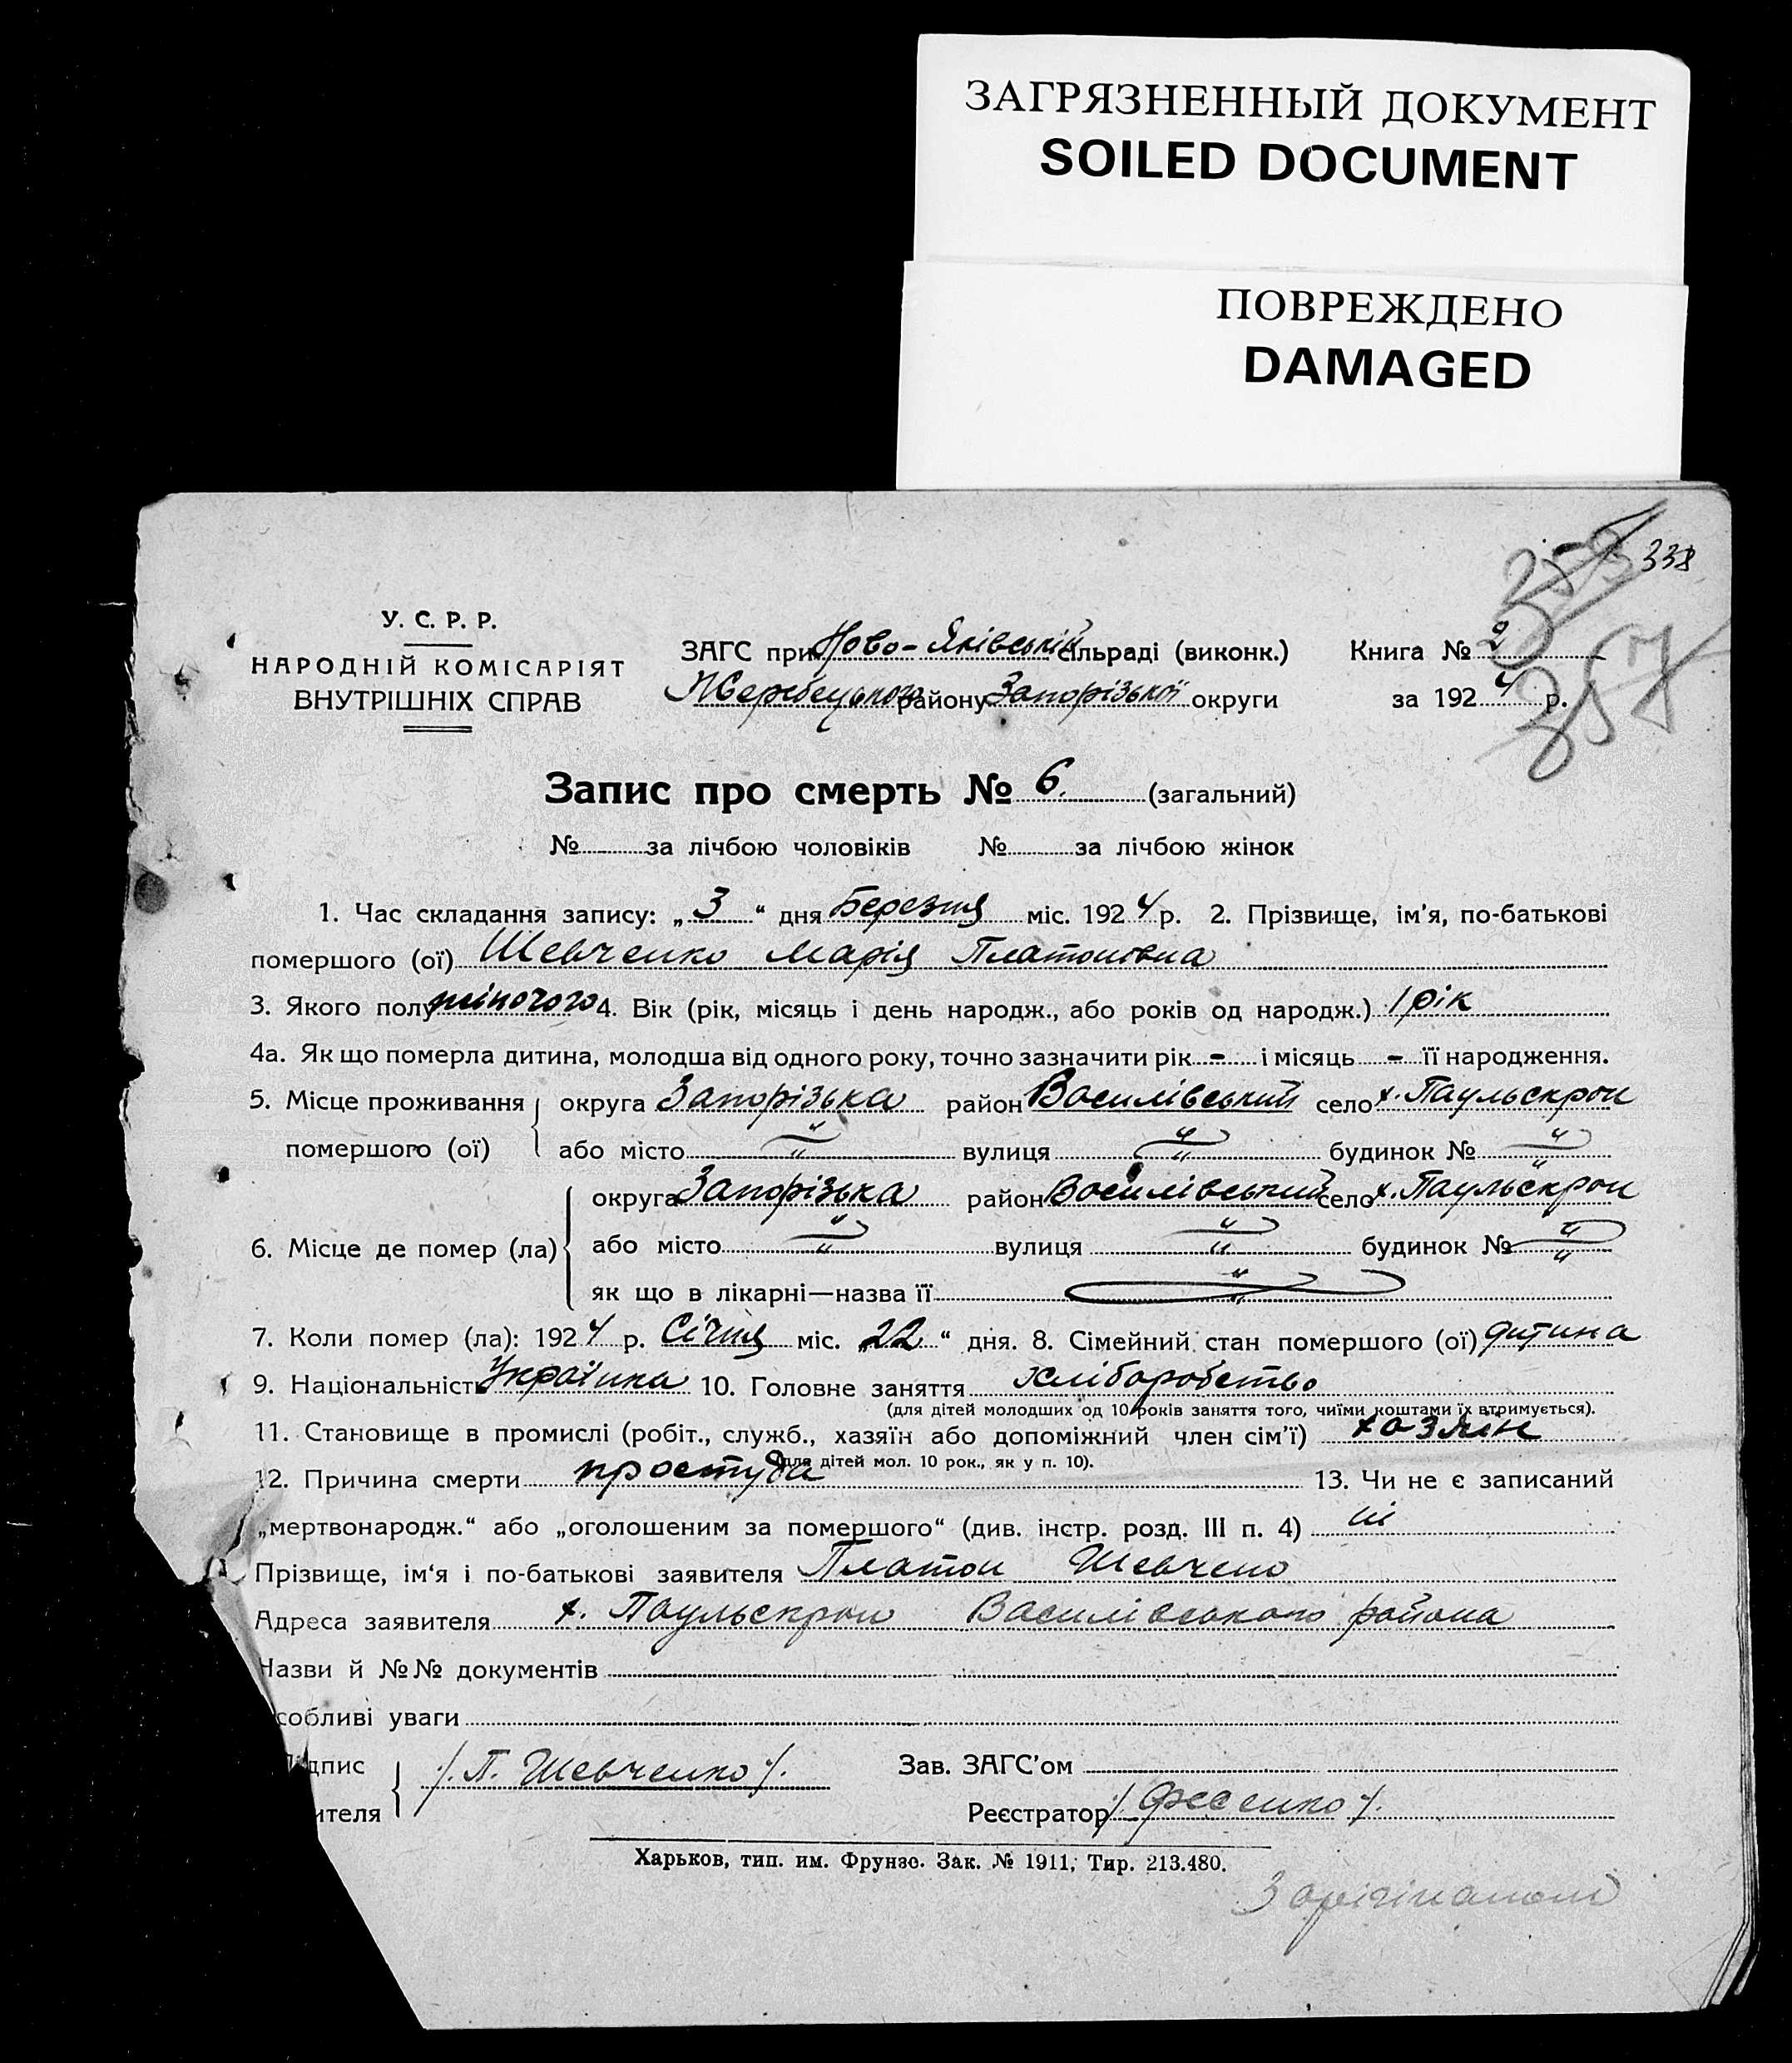 ЗАГРЯЗНЕННЫЙ ДОКУМЕНТ
SOILED DOCUMENT
ПОВРЕЖДЕНО
DAMAGED
338
253
257
У. С. Р. Р.
НАРОДНІЙ КОМІСАРІЯТ
ВНУТРІШНІХ СПРАВ
ЗАГС при Ново-Яківській сільраді (виконк.) Книга № 2
Жеребецького району Запорізької округи за 1924 р.
Запис про смерть № 6. (загальний)
№ за лічбою чоловіків № за лічбою жінок
1. Час складання запису: „3“ дня Березня міс. 1924 р. 2. Прізвище, ім'я, по-батькові
помершого (ої) Шевченко Марія Платонівна
3. Якого полу жіночого 4. Вік (рік, місяць і день народж., або років од народж.) 1 рік
4а. Як що померла дитина, молодша від одного року, точно зазначити рік - і місяць - її народження.
5. Місце проживання помершого (ої) округа Запорізька район Василівський село х. Паульскрон
або місто " вулиця " будинок № "
6. Місце де помер (ла) округа Запорізька район Василівський село х. Паульскрон
або місто " вулиця " будинок № "
як що в лікарні—назва її "
7. Коли помер (ла): 1924 р. Січня міс. „22“ дня. 8. Сімейний стан помершого (ої) дитина
9. Національність Українка 10. Головне заняття хліборобство
(для дітей молодших од 10 років заняття того, чиїми коштами їх втримується).
11. Становище в промислі (робіт., служб., хазяїн або допоміжний член сім'ї) хозяїн
(для дітей мол. 10 рок., як у п. 10).
12. Причина смерти простуда 13. Чи не є записаний
„мертвонародж.“ або „оголошеним за помершого“ (див. інстр. розд. III п. 4) ні
Прізвище, ім'я і по-батькові заявителя Платон Шевчено
Адреса заявителя х. Паульскрон Василівського района
Назви й №№ документів
собливі уваги
ідпис /. П. Шевченко /. Зав. ЗАГС'ом
ителя Реєстратор /. Фесенко /.
Харьков, тип. им. Фрунзе. Зак. № 1911, Тир. 213.480.
З орігіналом